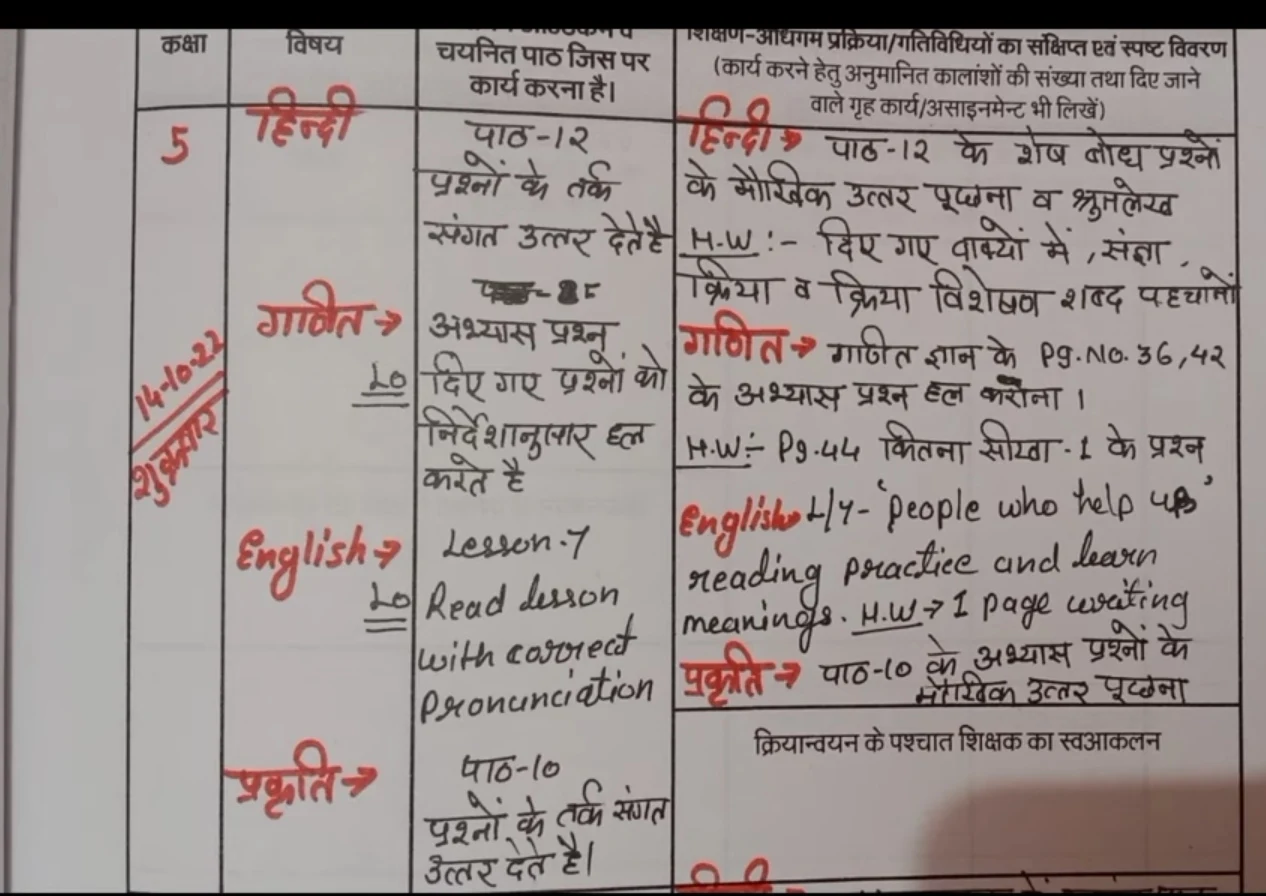 कक्षा
विषय
चयनित पाठ जिस पर
कार्य करना है।
शिक्षण-अधिगम प्रक्रिया/गतिविधियों का संक्षिप्त एवं स्पष्ट विवरण
(कार्य करने हेतु अनुमानित कालांशों की संख्या तथा दिए जाने
वाले गृह कार्य/असाइनमेन्ट भी लिखें)
5
14-10-22
शुक्रवार
हिन्दी
पाठ-12
प्रश्नों के तर्क
संगत उत्तर देते है
गणित →
LO
अभ्यास प्रश्न
दिए गए प्रश्नों को
निर्देशानुसार हल
करते है
English →
LO
Lesson-7
Read lesson
with correct
Pronunciation
प्रकृति →
पाठ-10
प्रश्नों के तर्क संगत
उत्तर देते है।
हिन्दी → पाठ-12 के शेष बोध प्रश्नों
के मौखिक उत्तर पूछना व श्रुतलेख
H.W :- दिए गए वाक्यों में, संज्ञा,
क्रिया व क्रिया विशेषण शब्द पहचानों
गणित → गणित ज्ञान के Pg.No. 36,42
के अभ्यास प्रश्न हल कराना।
H.W:- Pg.44 कितना सीखा-1 के प्रश्न
English → L/7- 'People who help us'
reading practice and learn
meanings. H.W → 1 page writing
प्रकृति → पाठ-10 के अभ्यास प्रश्नों के
मौखिक उत्तर पूछना
क्रियान्वयन के पश्चात शिक्षक का स्वआकलन